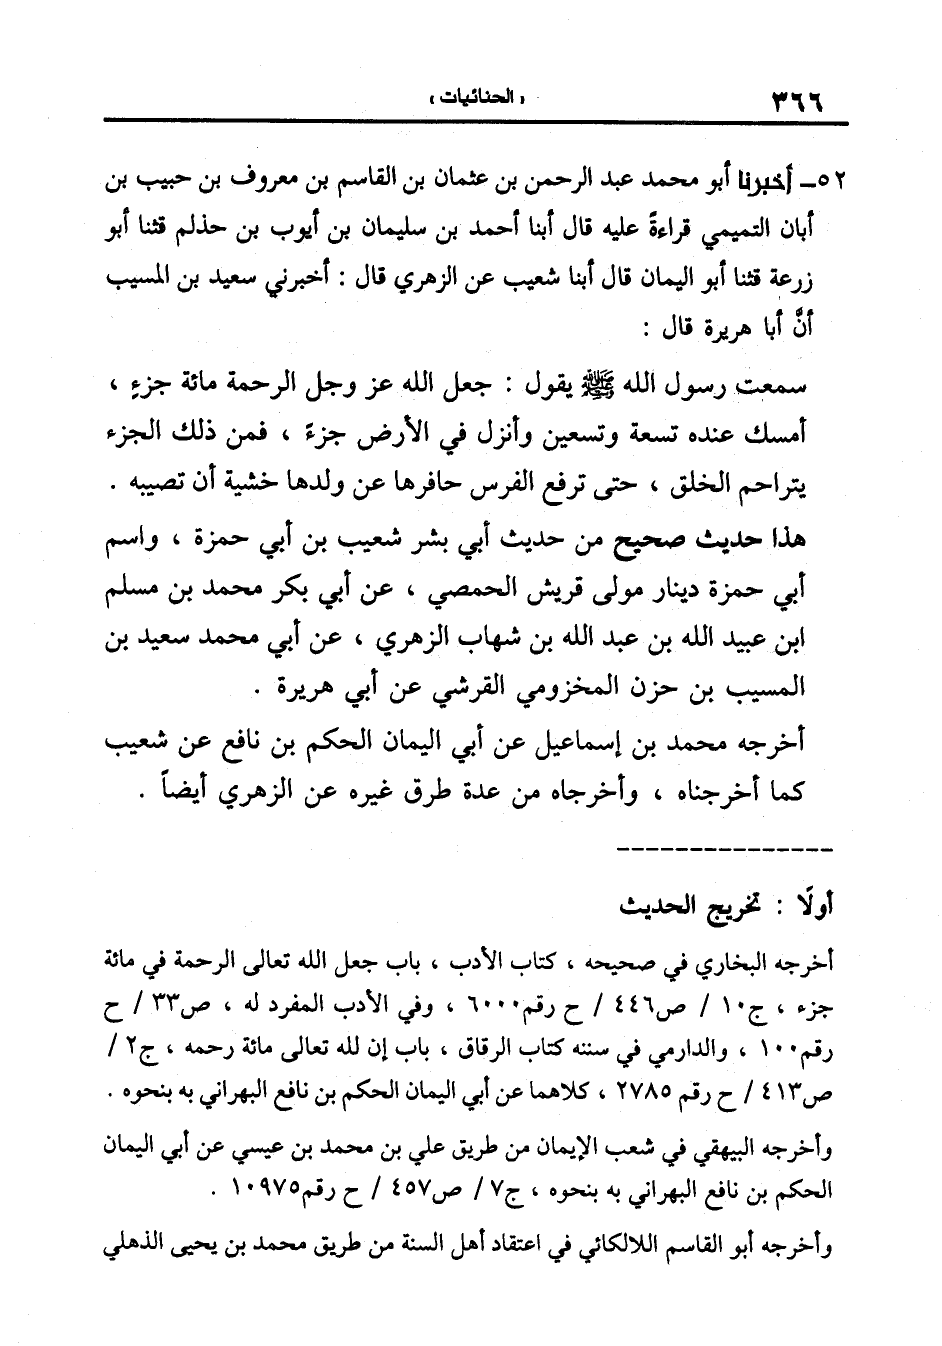 ٣٦٦ «الحنائيات»
٥٢ـ أخبرنا أبو محمد عبد الرحمن بن عثمان بن القاسم بن معروف بن حبيب بن
أبان التميمي قراءةً عليه قال أبنا أحمد بن سليمان بن أيوب بن حذلم قثنا أبو
زرعة قثنا أبو اليمان قال أبنا شعيب عن الزهري قال : أخبرني سعيد بن المسيب
أنَّ أبا هريرة قال :
سمعت رسول الله ﷺ يقول : جعل الله عز وجل الرحمة مائة جزءٍ ،
أمسك عنده تسعة وتسعين وأنزل في الأرض جزءً ، فمن ذلك الجزء
يتراحم الخلق ، حتى ترفع الفرس حافرها عن ولدها خشية أن تصيبه .
هذا حديث صحيح من حديث أبي بشر شعيب بن أبي حمزة ، واسم
أبي حمزة دينار مولى قريش الحمصي ، عن أبي بكر محمد بن مسلم
ابن عبيد الله بن عبد الله بن شهاب الزهري ، عن أبي محمد سعيد بن
المسيب بن حزن المخزومي القرشي عن أبي هريرة .
أخرجه محمد بن إسماعيل عن أبي اليمان الحكم بن نافع عن شعيب
كما أخرجناه ، وأخرجاه من عدة طرق غيره عن الزهري أيضاً .
أولًا : تخريج الحديث
أخرجه البخاري في صحيحه ، كتاب الأدب ، باب جعل الله تعالى الرحمة في مائة
جزء ، ج١٠ / ص٤٤٦ / ح رقم٦٠٠٠ ، وفي الأدب المفرد له ، ص٣٣ / ح
رقم١٠٠ ، والدارمي في سننه كتاب الرقاق ، باب إن لله تعالى مائة رحمه ، ج٢ /
ص٤١٣ / ح رقم ٢٧٨٥ ، كلاهما عن أبي اليمان الحكم بن نافع البهراني به بنحوه .
وأخرجه البيهقي في شعب الإيمان من طريق علي بن محمد بن عيسي عن أبي اليمان
الحكم بن نافع البهراني به بنحوه ، ج٧ / ص٤٥٧ / ح رقم١٠٩٧٥ .
وأخرجه أبو القاسم اللالكائي في اعتقاد أهل السنة من طريق محمد بن يحيى الذهلي